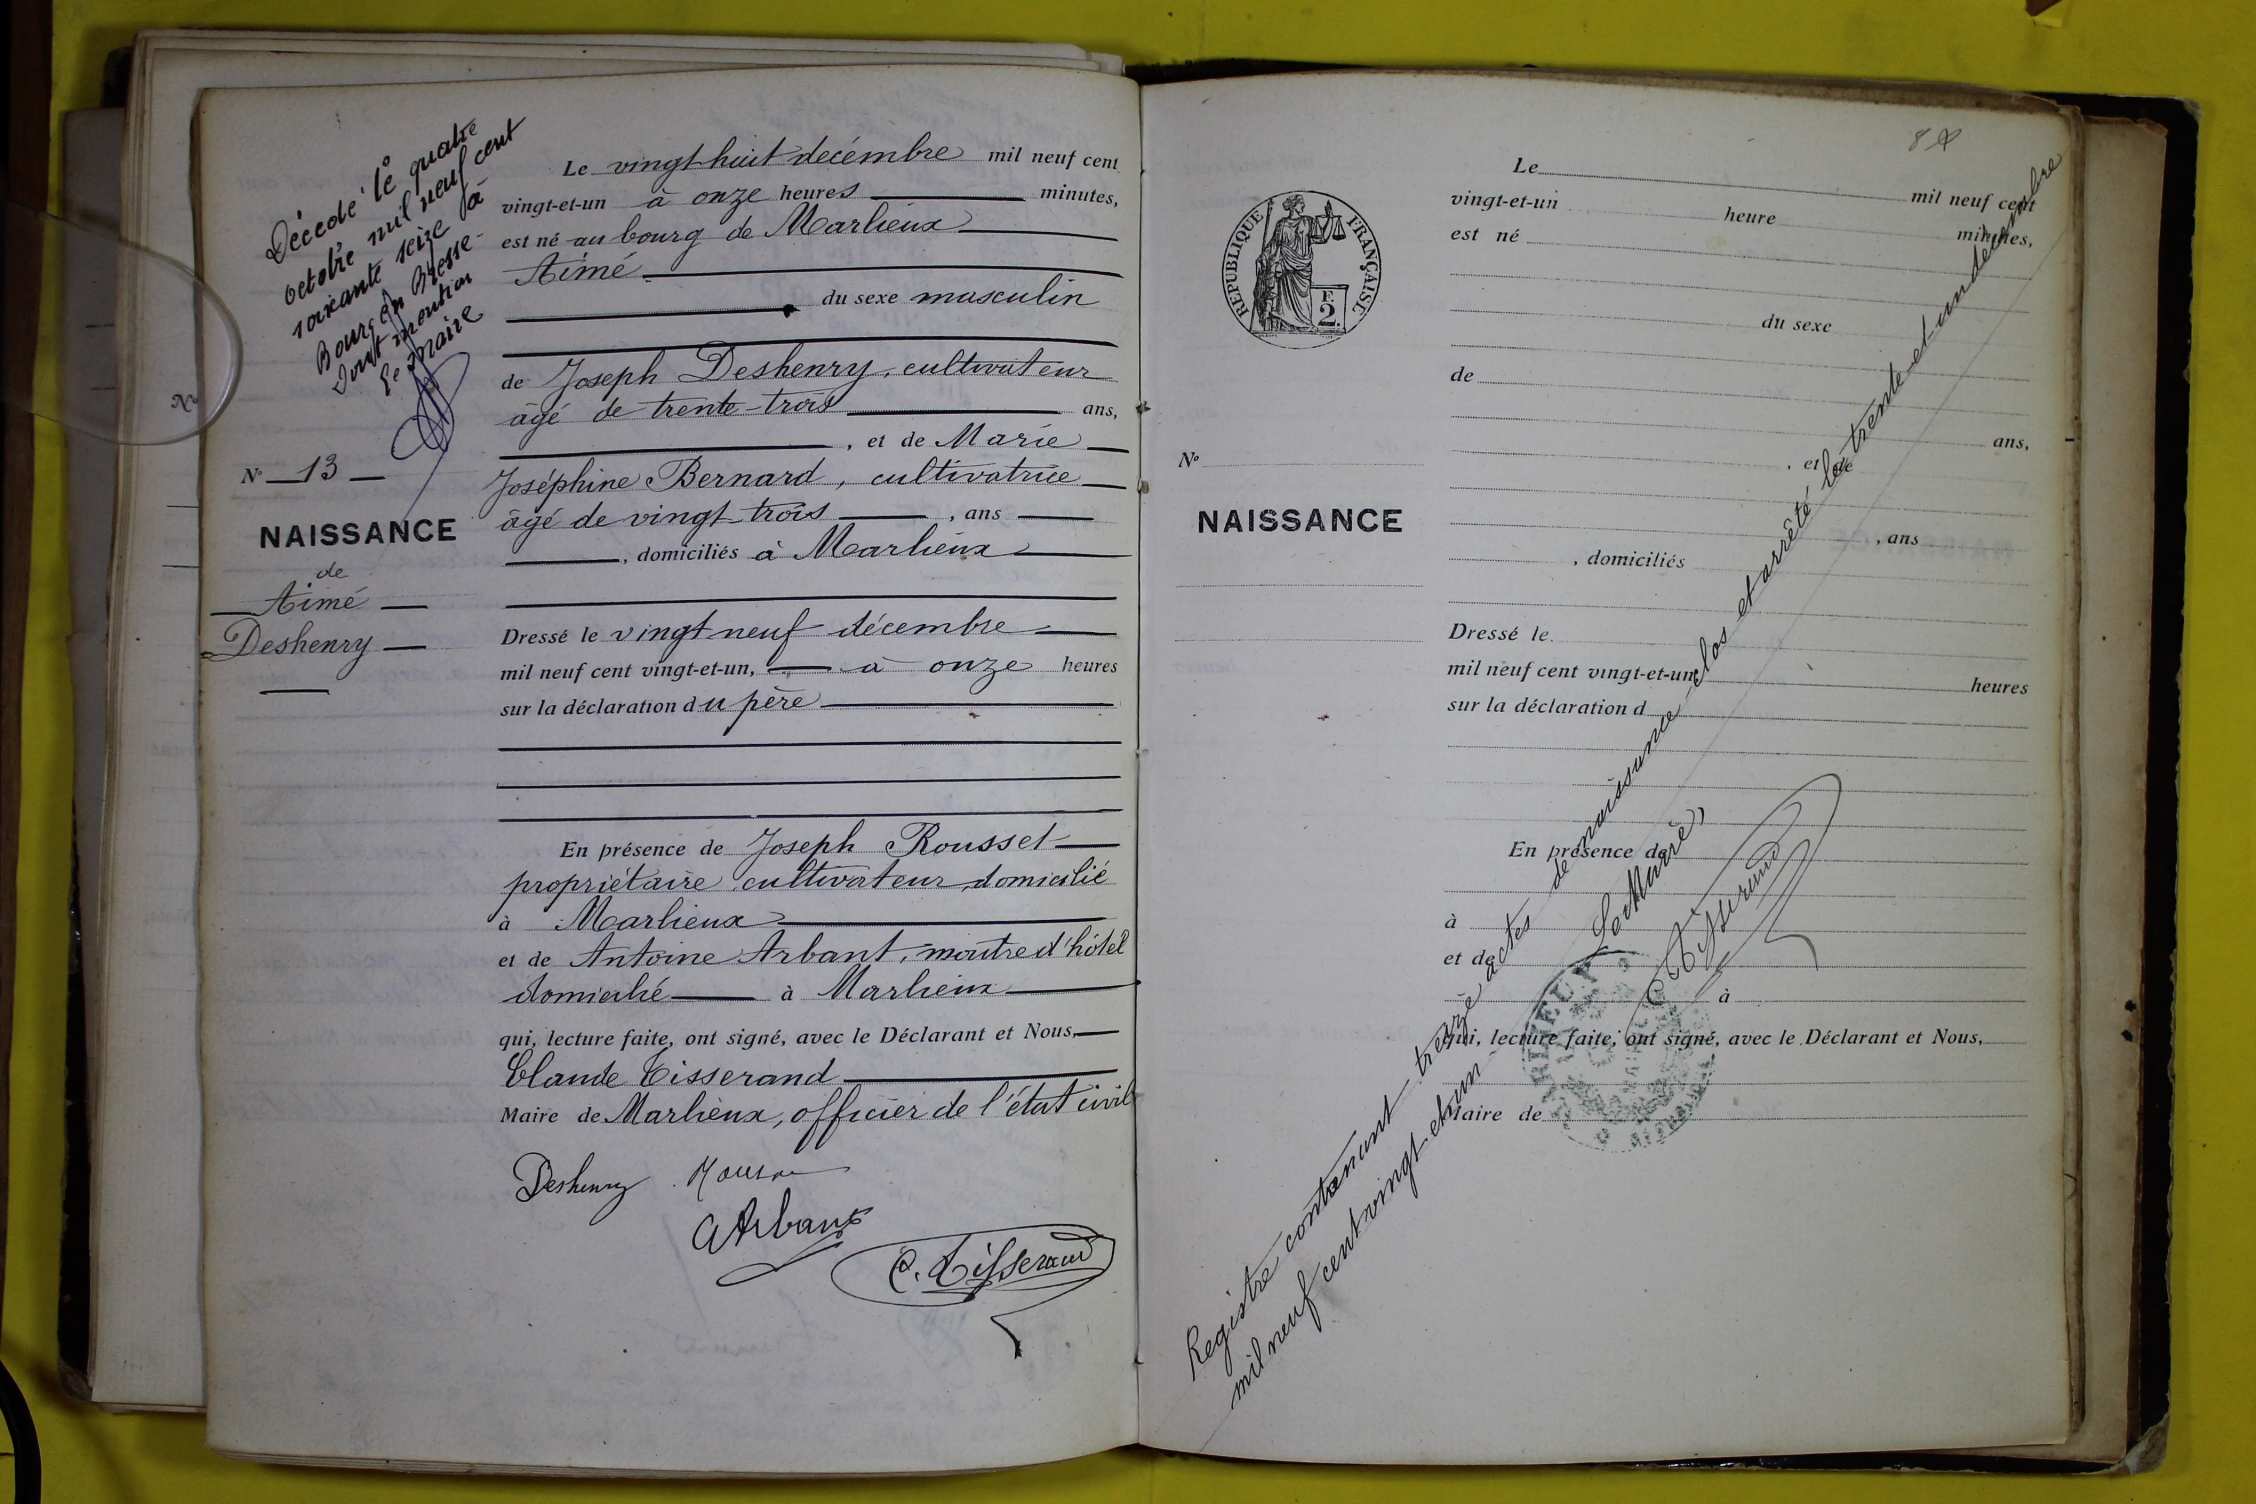 Décédé le quatre
octobre mil neuf cent
soixante seize à
Bourg en Bresse
Dont mention
Le Maire
N° 13
NAISSANCE
de
Aimé
Deshenry
Le vingt huit décembre mil neuf cent
vingt-et-un à onze heures minutes,
est né au bourg de Marlieux
Aimé
du sexe masculin
de Joseph Deshenry, cultivateur
âgé de trente-trois ans,
, et de Marie
Joséphine Bernard, cultivatrice
âgé de vingt trois , ans
, domiciliés à Marlieux
Dressé le vingt neuf décembre
mil neuf cent vingt-et-un, à onze heures
sur la déclaration du père
En présence de Joseph Rousset
propriétaire cultivateur domicilié
à Marlieux
et de Antoine Arbant, maître d'hôtel
domicilié à Marlieux
qui, lecture faite, ont signé, avec le Déclarant et Nous,
Claude Tisserand
Maire de Marlieux, officier de l'état civil
Deshenry
A Arbant
C. Tisserand
8
REPUBLIQUE FRANÇAISE
F.
2.
N°
NAISSANCE
Le mil neuf cent
vingt-et-un heure minutes,
est né
du sexe
de
ans,
, et de
, ans
, domiciliés
Dressé le
mil neuf cent vingt-et-un, heures
sur la déclaration d
En présence de
à
et de
à
qui, lecture faite, ont signé, avec le Déclarant et Nous,
Maire de
Registre contenant treize actes de naissance clos et arrêté le trente et un décembre
mil neuf cent vingt et un
Le Maire,
C. Tisserand